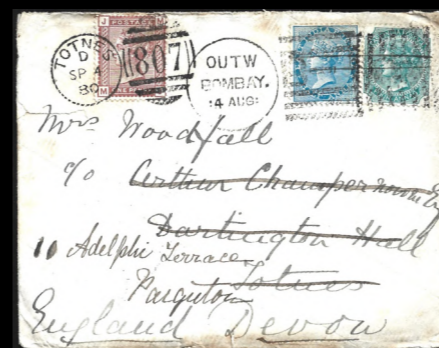 TOTNES
D
SP 4
80
J M
POSTAGE
M J
807
OUTW
BOMBAY.
4 AUG:
Mrs Woodfall
c/o Arthur Champernowne Esq
Dartington Hall
10 Adelphi Terrace
Totnes
Paignton
England Devon